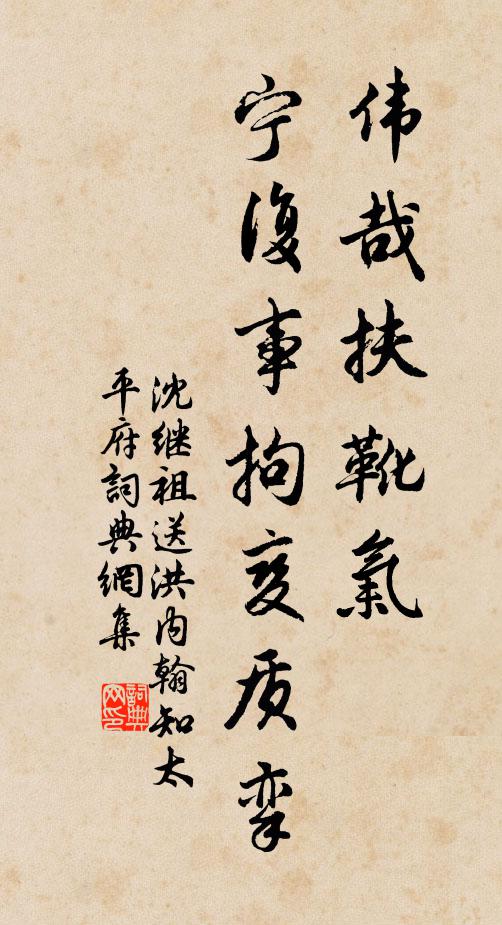 伟哉扶靴氣
宁復事拘变质挛
沈继祖送洪内翰知太
平府詞典網集
詞典
网印